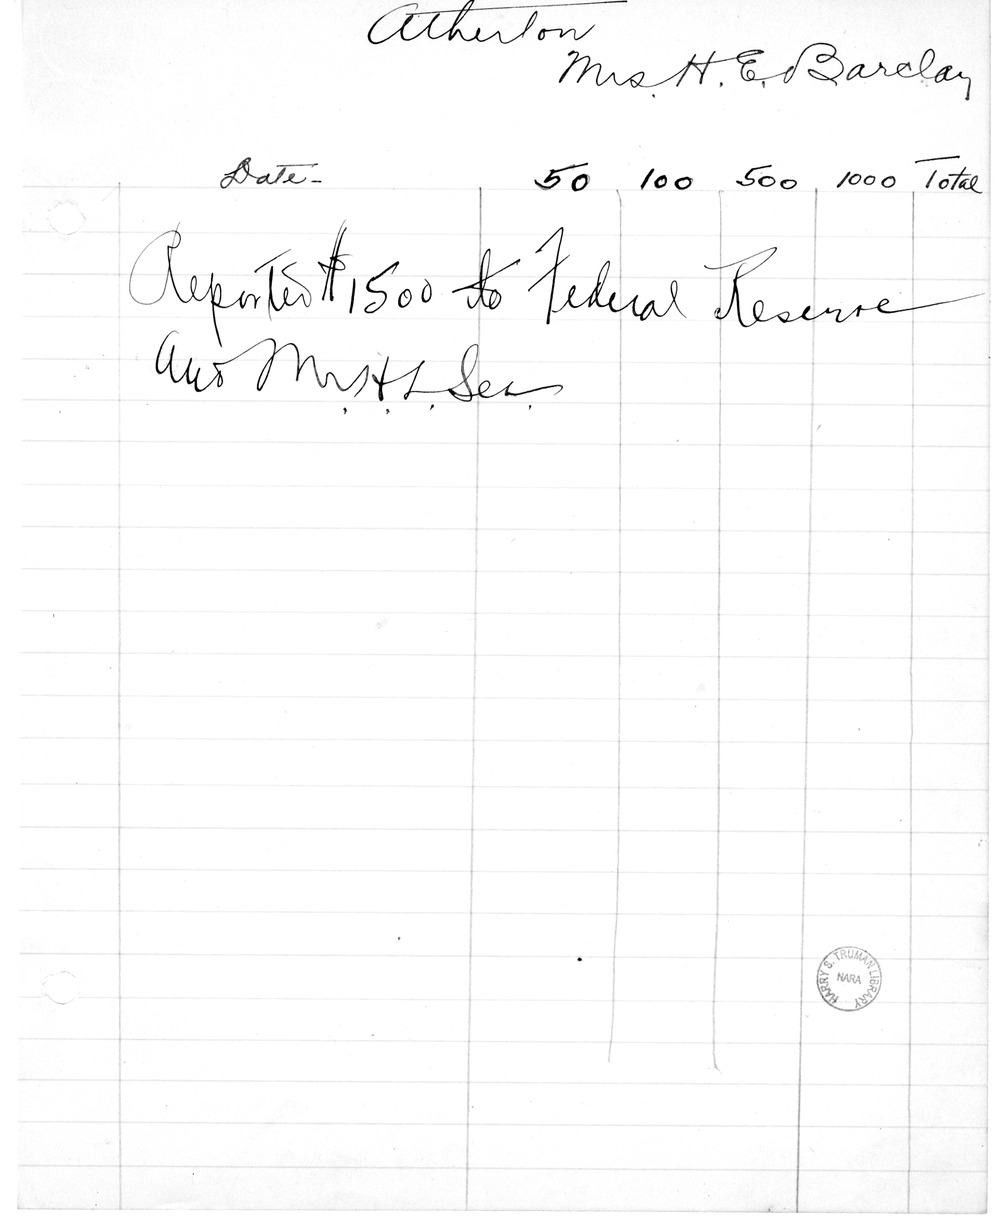 Atherton
Mrs. H. E. Barclay
Date - 50 100 500 1000 Total
Reported $1500 to Federal Reserve
and Mrs. H. L. See.
HARRY S. TRUMAN LIBRARY
NARA